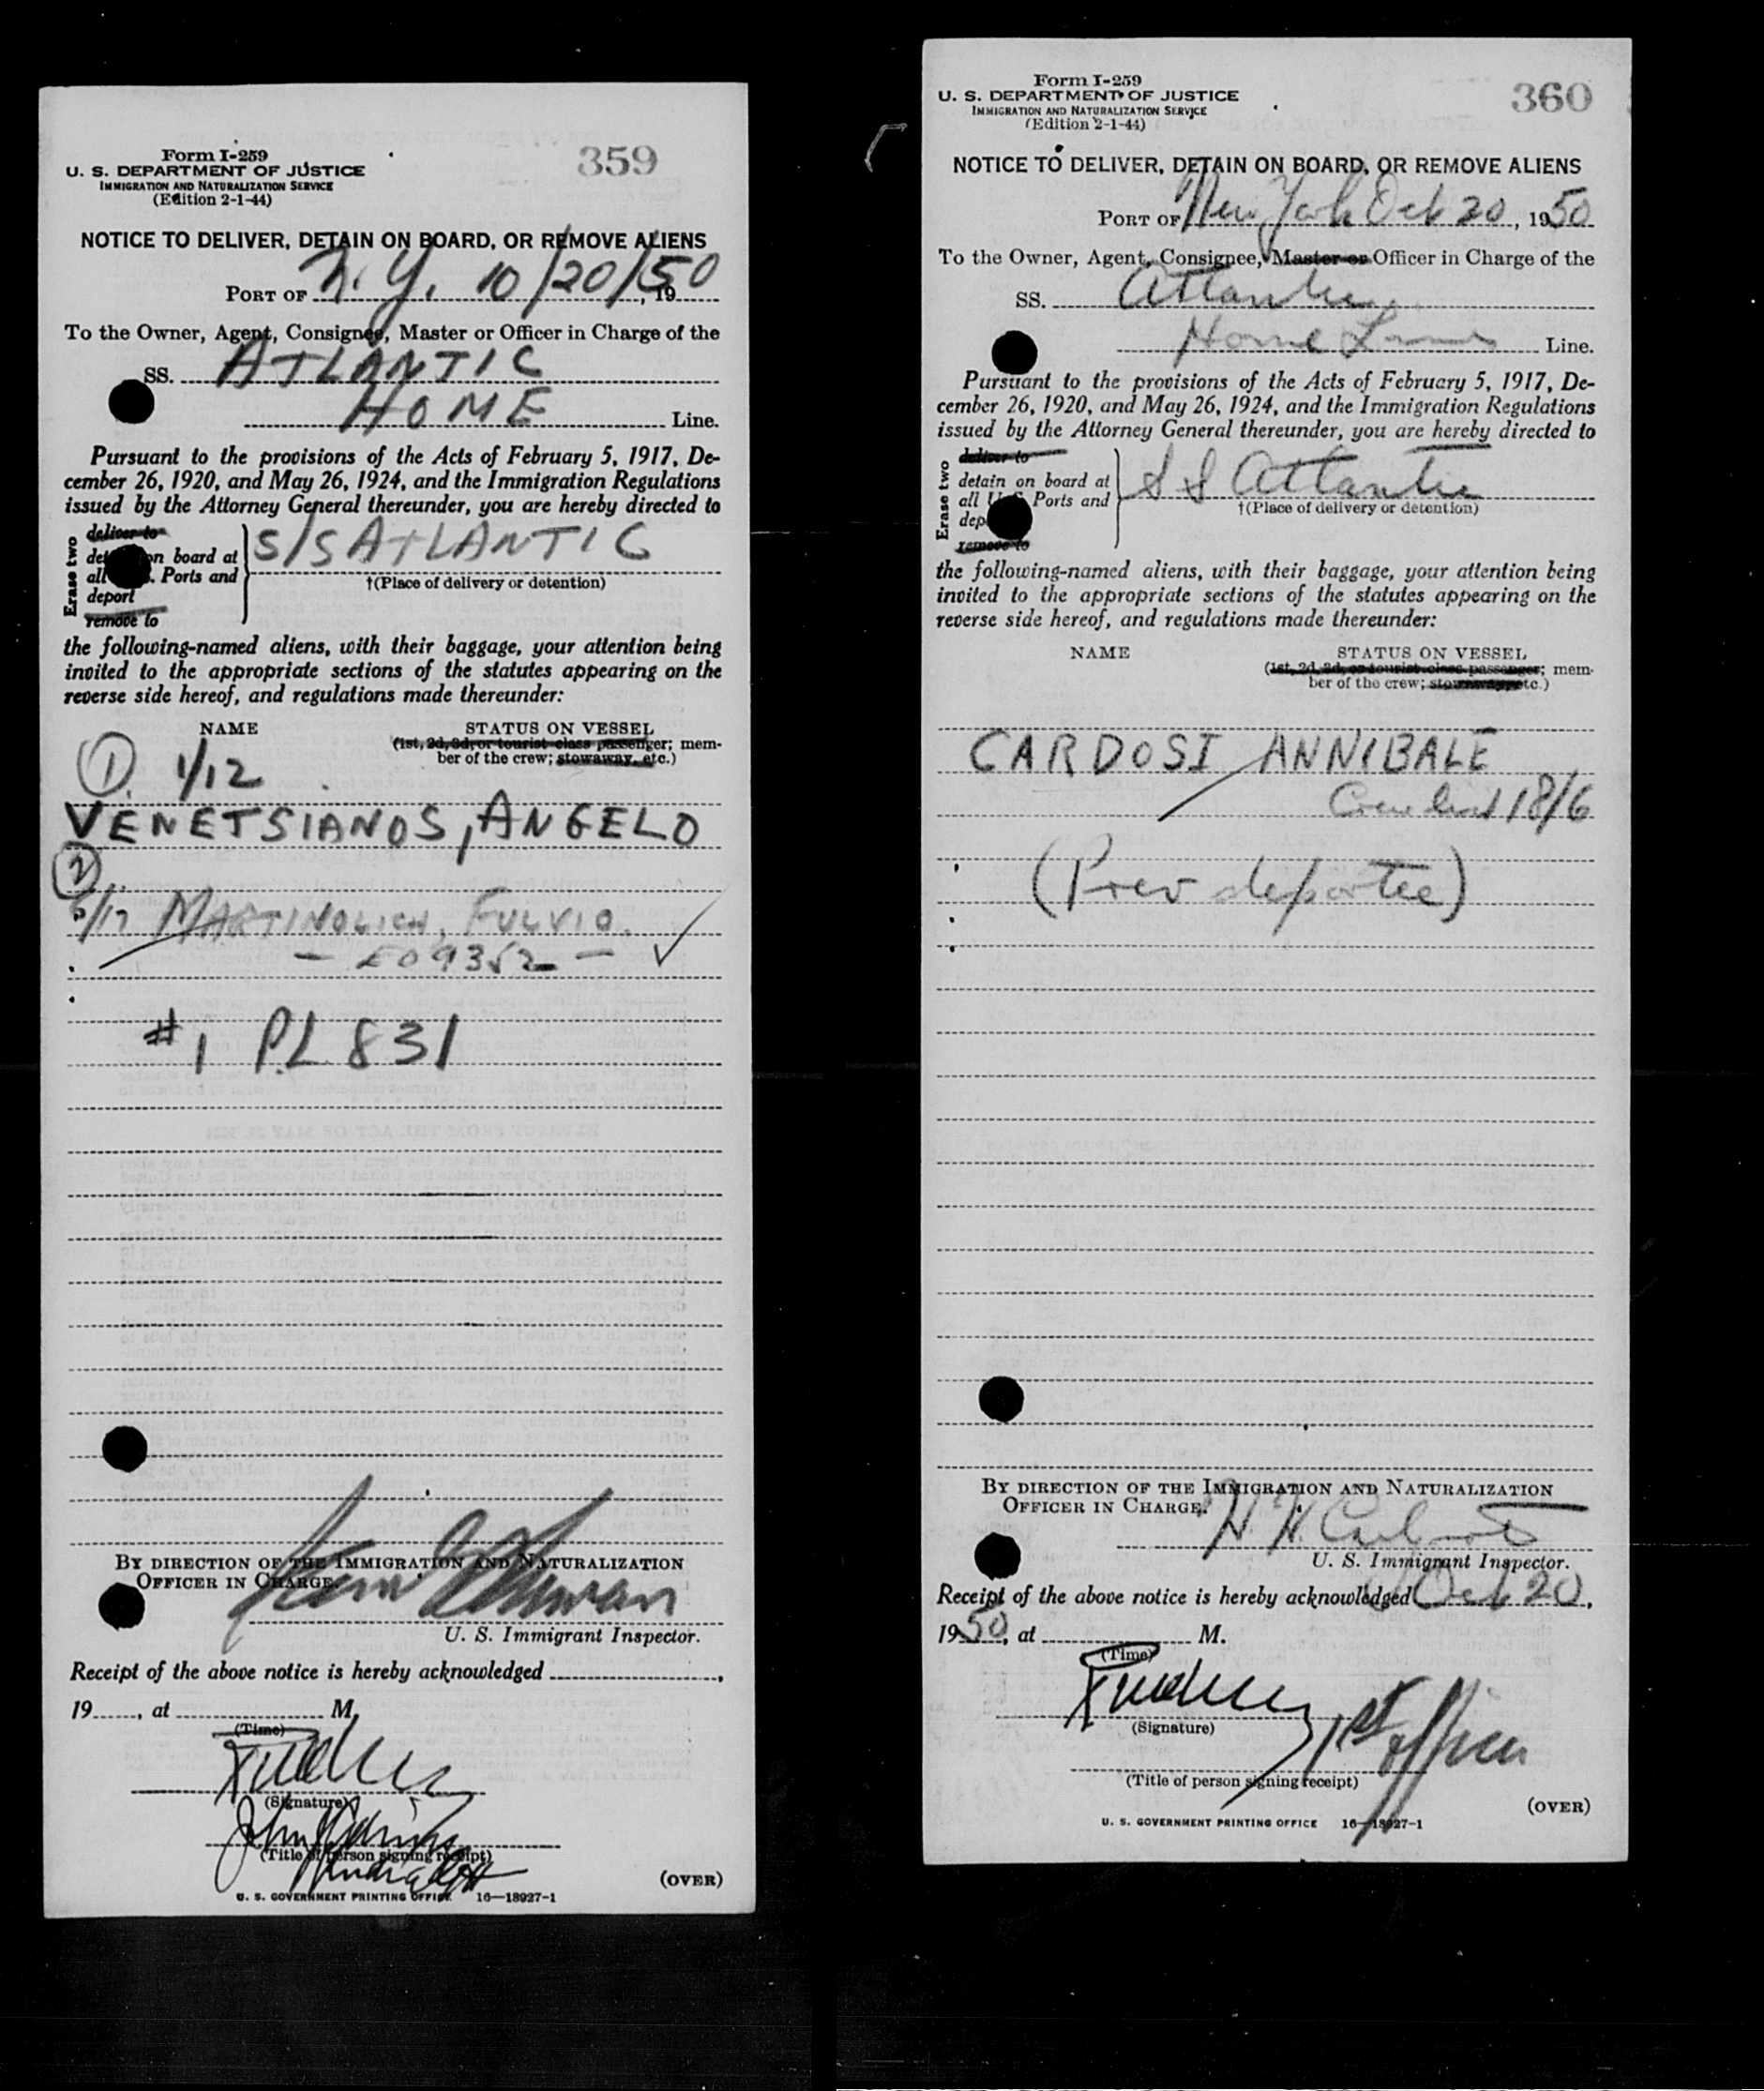 Form I-259
U. S. DEPARTMENT OF JUSTICE
IMMIGRATION AND NATURALIZATION SERVICE
(Edition 2-1-44)
359
NOTICE TO DELIVER, DETAIN ON BOARD, OR REMOVE ALIENS
PORT OF N.Y. 10/20/50, 19
To the Owner, Agent, Consignee, Master or Officer in Charge of the
SS. ATLANTIC
HOME Line.
Pursuant to the provisions of the Acts of February 5, 1917, De-
cember 26, 1920, and May 26, 1924, and the Immigration Regulations
issued by the Attorney General thereunder, you are hereby directed to
Erase two
deliver to
on board at
all Ports and
deport
remove to
S/S ATLANTIC
†(Place of delivery or detention)
the following-named aliens, with their baggage, your attention being
invited to the appropriate sections of the statutes appearing on the
reverse side hereof, and regulations made thereunder:
NAME
STATUS ON VESSEL
(1st, 2d, 3d, or tourist class passenger; mem-
ber of the crew; stowaway, etc.)
1 1/12
VENETSIANOS, ANGELO
2
MARTINOLICH, FULVIO.
#1 P.L 831
BY DIRECTION OF THE IMMIGRATION AND NATURALIZATION
OFFICER IN CHARGE.
U. S. Immigrant Inspector.
Receipt of the above notice is hereby acknowledged ,
19 , at M.
(Time)
(Signature)
(Title of person signing receipt)
(OVER)
U. S. GOVERNMENT PRINTING OFFICE 16—18927-1
Form I-259
U. S. DEPARTMENT OF JUSTICE
IMMIGRATION AND NATURALIZATION SERVICE
(Edition 2-1-44)
360
NOTICE TO DELIVER, DETAIN ON BOARD, OR REMOVE ALIENS
PORT OF New York Oct 20, 1950
To the Owner, Agent, Consignee, Master or Officer in Charge of the
SS. Atlantic
Home Lines Line.
Pursuant to the provisions of the Acts of February 5, 1917, De-
cember 26, 1920, and May 26, 1924, and the Immigration Regulations
issued by the Attorney General thereunder, you are hereby directed to
Erase two
deliver to
detain on board at
all Ports and
remove to
SS Atlantic
†(Place of delivery or detention)
the following-named aliens, with their baggage, your attention being
invited to the appropriate sections of the statutes appearing on the
reverse side hereof, and regulations made thereunder:
NAME
STATUS ON VESSEL
(1st, 2d, 3d, or tourist class passenger; mem-
ber of the crew; stowaway, etc.)
CARDOSI ANNIBALE
Crew list 18/6
(Prev deportee)
BY DIRECTION OF THE IMMIGRATION AND NATURALIZATION
OFFICER IN CHARGE.
U. S. Immigrant Inspector.
Receipt of the above notice is hereby acknowledged Oct 20,
1950, at M.
(Time)
(Signature)
1st Officer
(Title of person signing receipt)
(OVER)
U. S. GOVERNMENT PRINTING OFFICE 16—18927-1